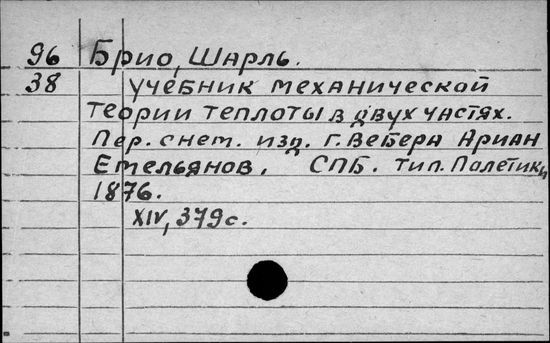 96 Брио, Шарль.
38 учебник механической
теории теплоты в двух частях.
Пер. снет. изд. г. Вебера Ариан
Емельянов. СПБ. тип. Полетики
1876.
XIV, 379 с.